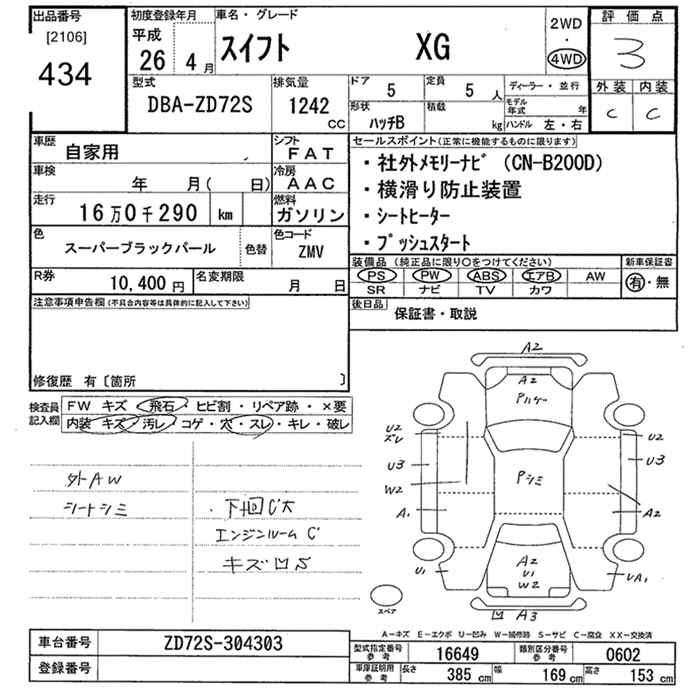 出品番号
[2106]
434
初度登録年月
平成
26 4月
車名・グレード
スイフト XG
2WD
・
4WD
評価点
3
外装 内装
C C
型式
DBA-ZD72S
排気量
1242
CC
ドア
5
定員
5人
形状
ハッチB
積載
kg
ディーラー・並行
モデル年式 年
ハンドル 左・右
車歴
自家用
シフト
FAT
車検
年 月( 日)
冷房
AAC
走行
16万0千290 km
燃料
ガソリン
色
スーパーブラックパール
色替
色コード
ZMV
R券
10,400円
名変期限
月 日
セールスポイント(正常に機能するものに限ります)
・社外メモリーナビ (CN-B200D)
・横滑り防止装置
・シートヒーター
・プッシュスタート
装備品(純正品に限り○をつけてください)
PS PW ABS エアB AW
SR ナビ TV カワ
新車保証書
有・無
後日品
保証書・取説
注意事項申告欄(不具合内容等は具体的に記入して下さい)
修復歴 有〔箇所 〕
検査員記入欄
FW キズ・飛石・ヒビ割・リペア跡・×要
内装 キズ・汚レ・コゲ・穴・スレ・キレ・破レ
外AW
シートシミ
・下回C大
エンジンルームC
キズ凹S
A2
A2
Pハゲ
U2
ズレ
U3
W2
A1
U1
Pシミ
U2
U3
A2
UA1
A2
U1
W2
凹 A3
スペア
A-キズ E-エクボ U-凹み W-補修跡 S-サビ C-腐食 XX-交換済
車台番号
ZD72S-304303
登録番号
型式指定番号
参考
16649
類別区分番号
参考
0602
車庫証明用
参考
長さ 385 cm
幅 169 cm
高さ 153 cm